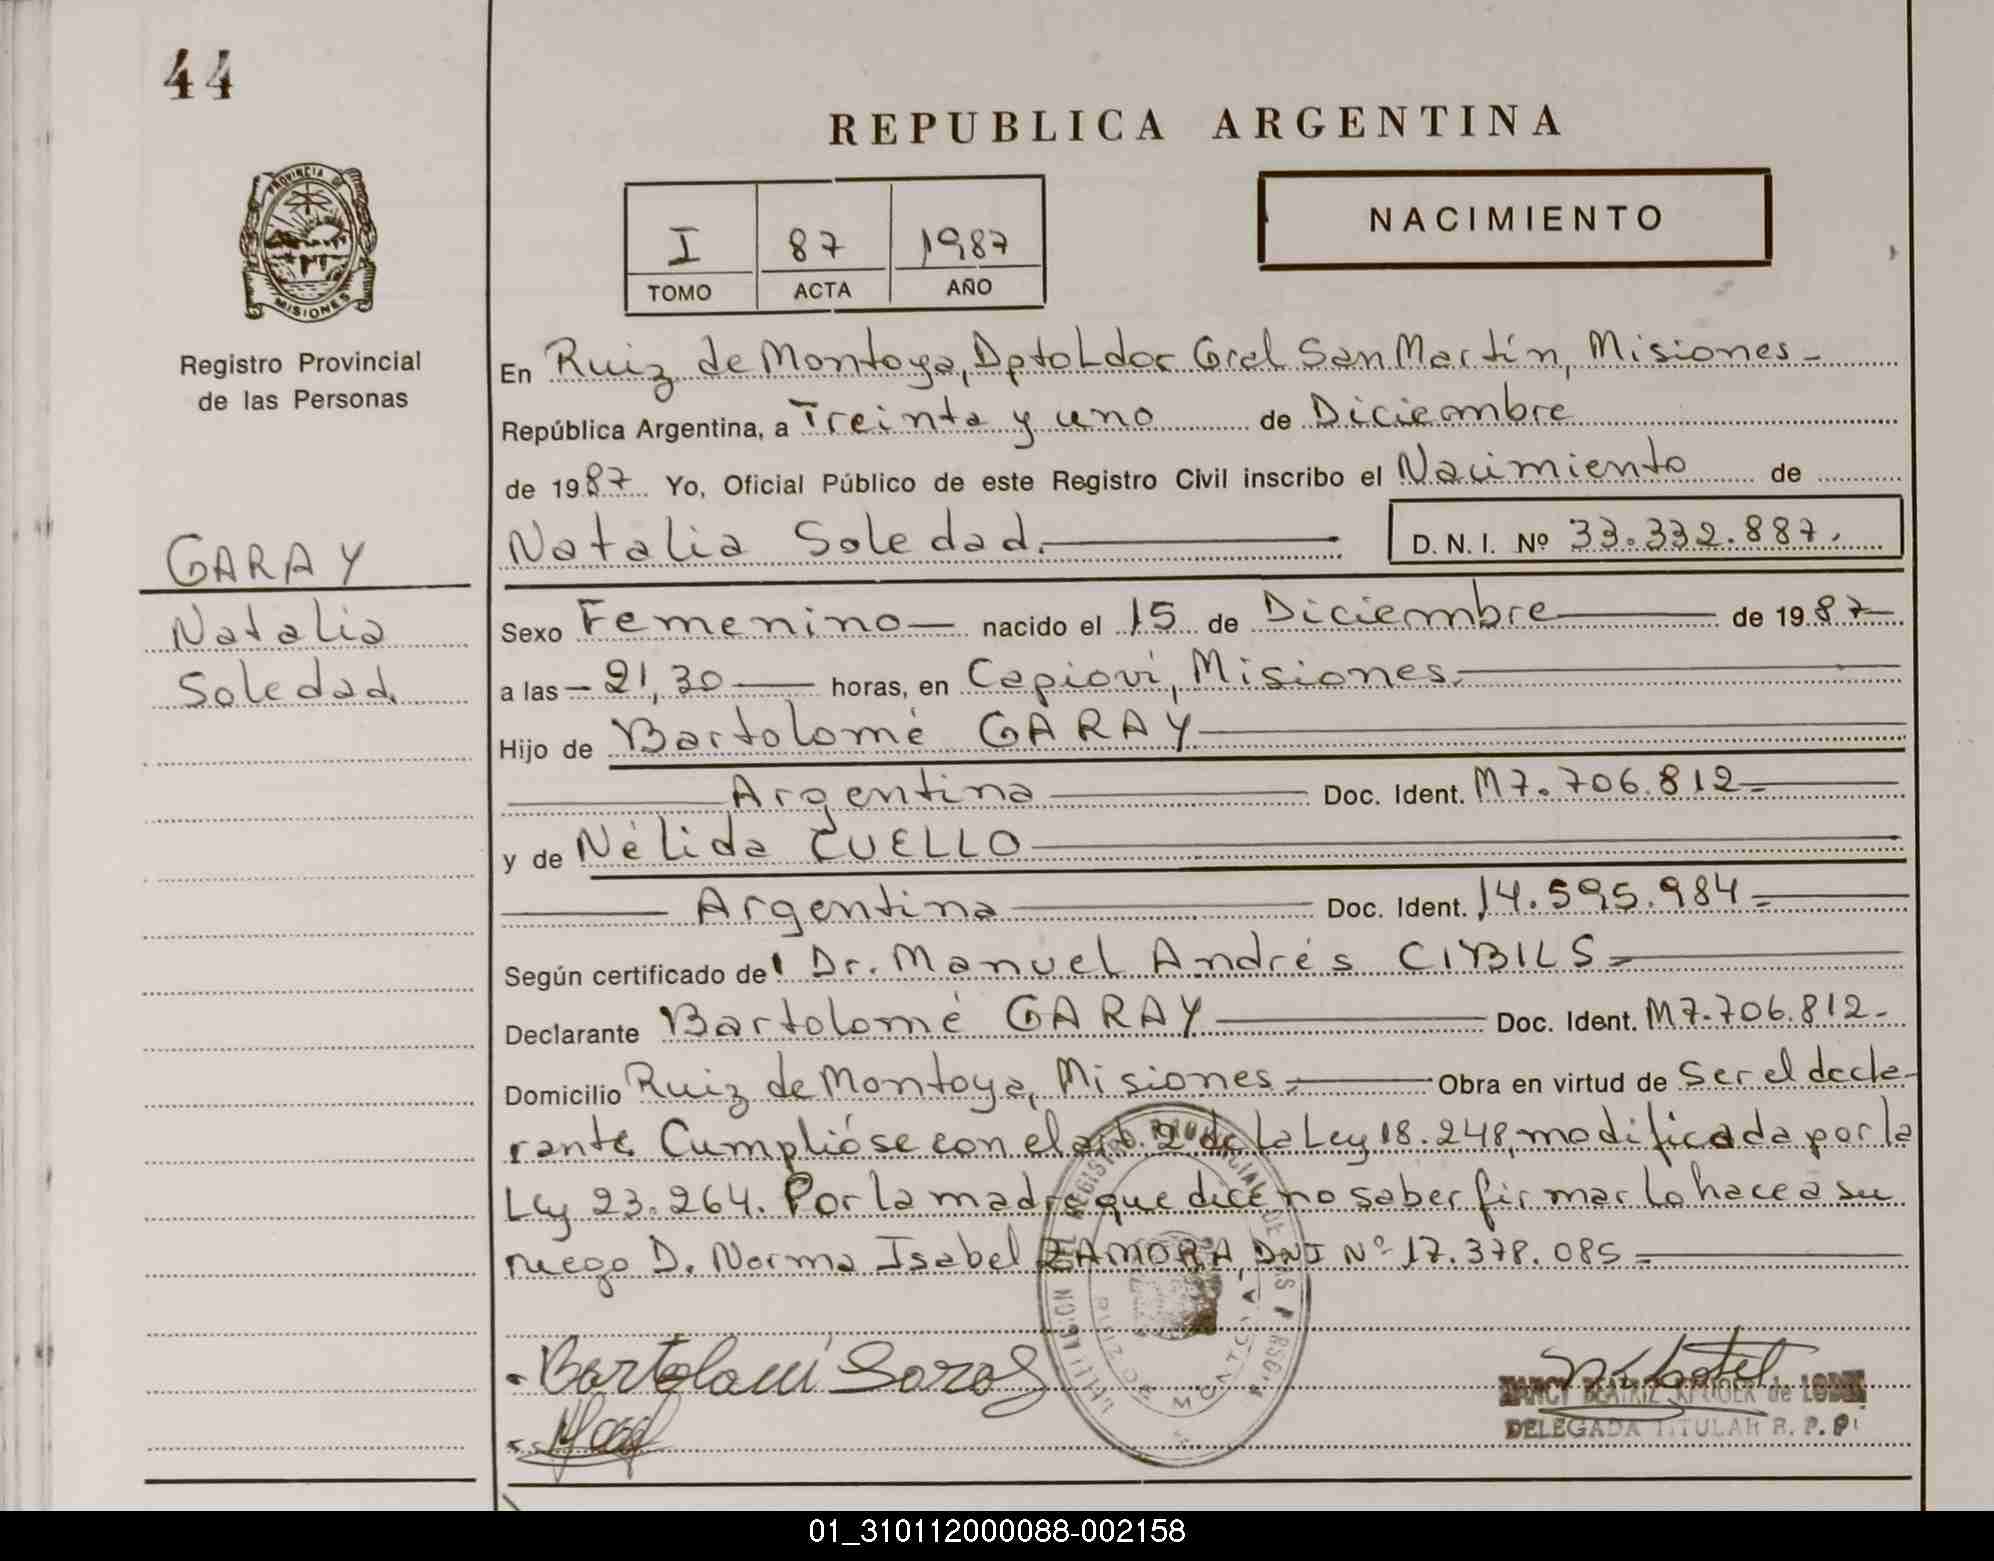 44
REPUBLICA ARGENTINA
PROVINCIA DE
MISIONES
Registro Provincial
de las Personas
I 87 1987
TOMO ACTA AÑO
NACIMIENTO
En Ruiz de Montoya, Dpto Ldor Gral San Martín, Misiones -
República Argentina, a Treinta y uno de Diciembre
de 1987 Yo, Oficial Público de este Registro Civil inscribo el Nacimiento de
GARAY
Natalia
Soledad.
Natalia Soledad. D. N. I. Nº 33.332.887.
Sexo Femenino — nacido el 15 de Diciembre — de 1987 -
a las - 21,30 — horas, en Capioví, Misiones. —
Hijo de Bartolomé GARAY —
— Argentina — Doc. Ident. M7.706.812 -
y de Nélida CUELLO —
— Argentina — Doc. Ident. 14.595.984 =
Según certificado de Dr. Manuel Andrés CIBILS =
Declarante Bartolomé GARAY — Doc. Ident. M7.706.812 -
Domicilio Ruiz de Montoya, Misiones — Obra en virtud de Ser el decla-
rante. Cumplióse con el art. 2 de la Ley 18.248, modificada por la
Ley 23.264. Por la madre que dice no saber firmar lo hace a su
ruego D. Norma Isabel ZAMORA, DNI Nº 17.378.085 =
RUIZ DE MONTOYA
NANCY BEATRIZ de
DELEGADA TITULAR R. P. P.
01_310112000088-002158